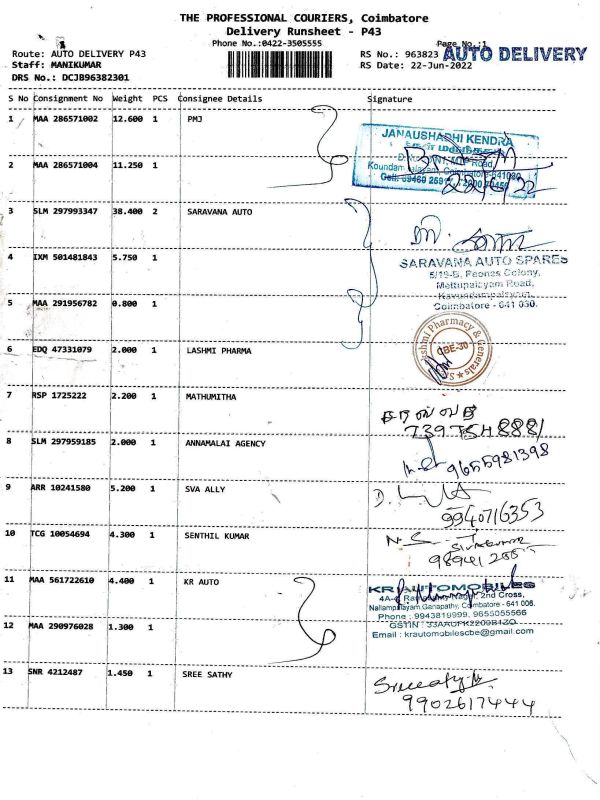 THE PROFESSIONAL COURIERS, Coimbatore
Delivery Runsheet - P43
Phone No.:0422-3505555
Page No.:1
Route: AUTO DELIVERY P43
RS No.: 963823
AUTO DELIVERY
Staff: MANIKUMAR
RS Date: 22-Jun-2022
DRS No.: DCJB96382301
S No Consignment No Weight PCS Consignee Details Signature
1 MAA 286571002 12.600 1 PMJ
JANAUSHADHI KENDRA
2 MAA 286571004 11.250 1
3 SLM 297993347 38.400 2 SARAVANA AUTO
4 IXM 501481843 5.750 1
SARAVANA AUTO SPARES
5/19-B, Peones Colony,
Mettupalayam Road,
Kavundampalayam,
Coimbatore - 641 030.
5 MAA 291956782 0.800 1
6 EDQ 47331079 2.000 1 LASHMI PHARMA
Pharmacy & Generals
CBE-30
7 RSP 1725222 2.200 1 MATHUMITHA
8 SLM 297959185 2.000 1 ANNAMALAI AGENCY
9655981398
9 ARR 10241580 5.200 1 SVA ALLY
9940716353
10 TCG 10054694 4.300 1 SENTHIL KUMAR
11 MAA 561722610 4.400 1 KR AUTO
KR AUTOMOBILES
2nd Cross,
Nallampalayam, Ganapathy, Coimbatore - 641 006.
Phone : 9943819999, 9655055566
Email : krautomobilescbe@gmail.com
12 MAA 290976028 1.300 1
13 SNR 4212487 1.450 1 SREE SATHY
9902617444